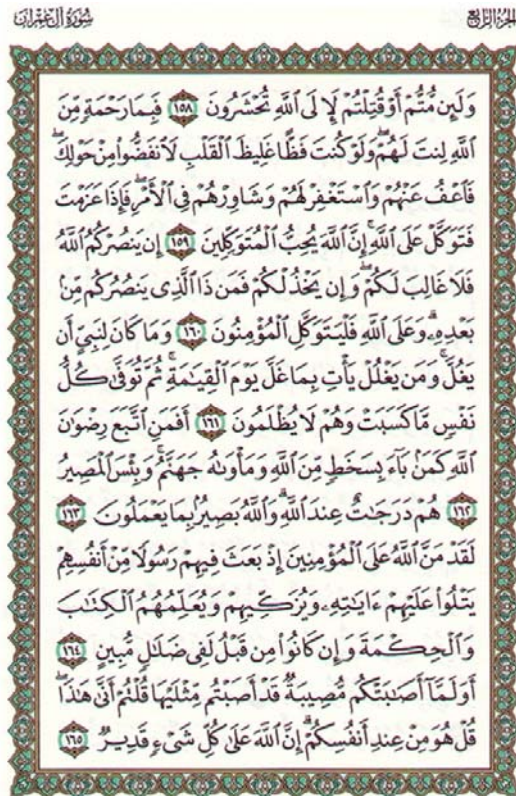 سُورَةُ آلِ عِمْرَان
الجُزْءُ الرَّابِعُ
وَلَئِن مُّتُّمْ أَوْ قُتِلْتُمْ لَإِلَى اللَّهِ تُحْشَرُونَ ١٥٨ فَبِمَا رَحْمَةٍ مِّنَ
اللَّهِ لِنتَ لَهُمْ ۖ وَلَوْ كُنتَ فَظًّا غَلِيظَ الْقَلْبِ لَانفَضُّوا مِنْ حَوْلِكَ ۖ
فَاعْفُ عَنْهُمْ وَاسْتَغْفِرْ لَهُمْ وَشَاوِرْهُمْ فِي الْأَمْرِ ۖ فَإِذَا عَزَمْتَ
فَتَوَكَّلْ عَلَى اللَّهِ ۚ إِنَّ اللَّهَ يُحِبُّ الْمُتَوَكِّلِينَ ١٥٩ إِن يَنصُرْكُمُ اللَّهُ
فَلَا غَالِبَ لَكُمْ ۖ وَإِن يَخْذُلْكُمْ فَمَن ذَا الَّذِي يَنصُرُكُم مِّن
بَعْدِهِ ۗ وَعَلَى اللَّهِ فَلْيَتَوَكَّلِ الْمُؤْمِنُونَ ١٦٠ وَمَا كَانَ لِنَبِيٍّ أَن
يَغُلَّ ۚ وَمَن يَغْلُلْ يَأْتِ بِمَا غَلَّ يَوْمَ الْقِيَٰمَةِ ۚ ثُمَّ تُوَفَّىٰ كُلُّ
نَفْسٍ مَّا كَسَبَتْ وَهُمْ لَا يُظْلَمُونَ ١٦١ أَفَمَنِ اتَّبَعَ رِضْوَٰنَ
اللَّهِ كَمَن بَاءَ بِسَخَطٍ مِّنَ اللَّهِ وَمَأْوَىٰهُ جَهَنَّمُ ۚ وَبِئْسَ الْمَصِيرُ
١٦٢ هُمْ دَرَجَٰتٌ عِندَ اللَّهِ ۗ وَاللَّهُ بَصِيرٌ بِمَا يَعْمَلُونَ ١٦٣
لَقَدْ مَنَّ اللَّهُ عَلَى الْمُؤْمِنِينَ إِذْ بَعَثَ فِيهِمْ رَسُولًا مِّنْ أَنفُسِهِمْ
يَتْلُوا عَلَيْهِمْ ءَايَٰتِهِ وَيُزَكِّيهِمْ وَيُعَلِّمُهُمُ الْكِتَٰبَ
وَالْحِكْمَةَ وَإِن كَانُوا مِن قَبْلُ لَفِي ضَلَٰلٍ مُّبِينٍ ١٦٤
أَوَلَمَّا أَصَٰبَتْكُم مُّصِيبَةٌ قَدْ أَصَبْتُم مِّثْلَيْهَا قُلْتُمْ أَنَّىٰ هَٰذَا ۖ
قُلْ هُوَ مِنْ عِندِ أَنفُسِكُمْ ۗ إِنَّ اللَّهَ عَلَىٰ كُلِّ شَىْءٍ قَدِيرٌ ١٦٥